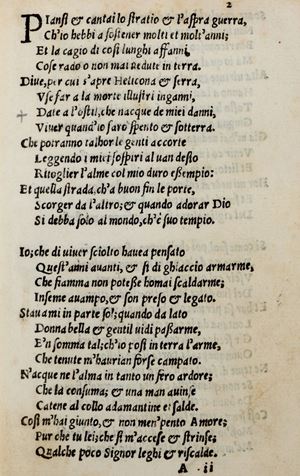 2
Piansi et cantai lo stratio et l'aspra guerra,
Ch'io hebbi a sostener molti et molt'anni;
Et la cagio di così lunghi affanni,
Cose rado o non mai vedute in terra.
Dive, per cui s'apre Helicona et serra,
Use far a la morte illustri inganni,
Date a lo stil, che nacque de miei danni,
Viver quand'io sarò spento et sotterra.
Che potranno talhor le genti accorte
Leggendo i miei sospiri al uan desio
Ritoglier l'alme col mio duro essempio:
Et quella strada, ch'a buon fin le porte,
Scorger da l'altro; et quando adorar Dio
Si debba solo al mondo, ch'è suo tempio.
Io; che di uiuer sciolto hauea pensato
Quest'anni auanti, et sì di ghiaccio armarme,
Che fiamma non potesse homai scaldarme;
Inseme auampo, et son preso et legato.
Staua mi in parte sol; quando da lato
Donna bella et gentil uidi passarme,
E'n somma tal; ch'io posi in terra l'arme,
Che tenute m'haurian forse campato.
N'acque ne l'alma in tanto un fero ardore;
Che la consuma; et una man auinse
Catene al collo adamantine et salde.
Così m'hai giunto, et non men' pento Amore;
Pur che tu lei; che sì m'accese et strinse;
Qualche poco Signor leghi et riscalde.
A ii